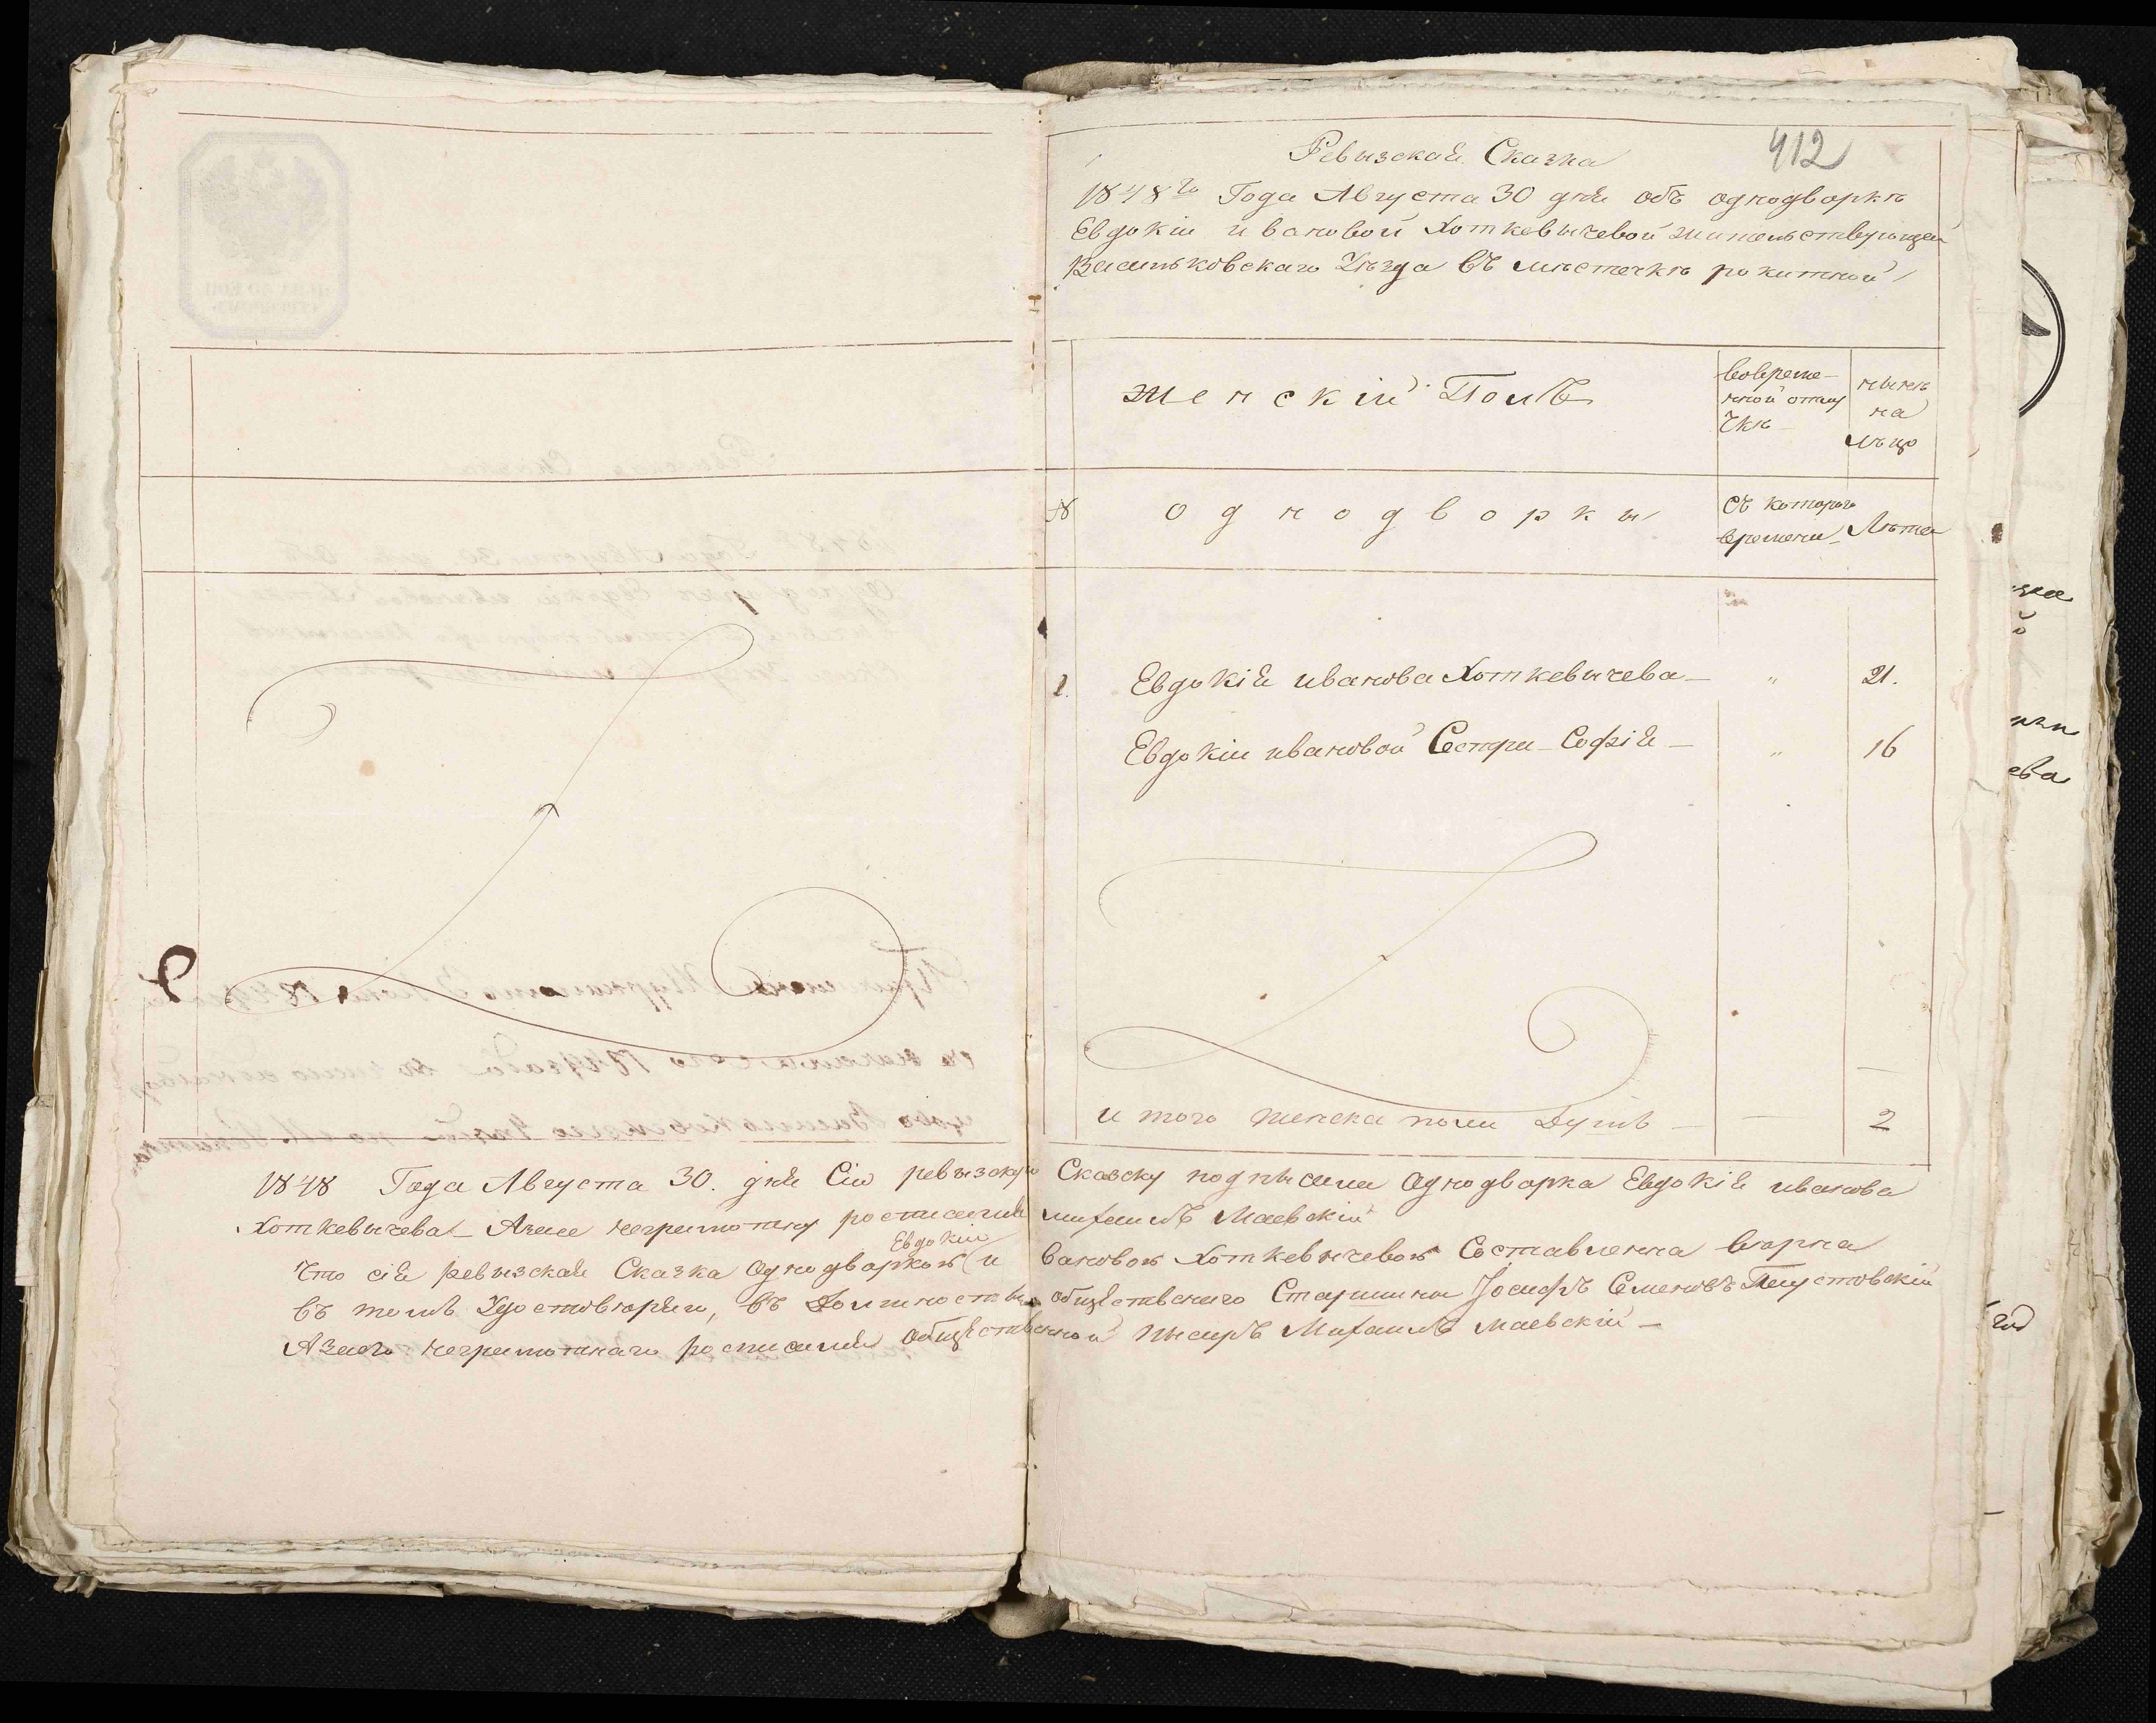 412
Ревызская Сказка
1848го Года Августа 30 дня объ однодворкѣ
Евдокіи ивановой Хоткевычевой жительствующей
Васильковскаго Уѣзда въ мѣстечкѣ рокитной
женскій Полъ
вовреме-
нной отлу
чкѣ
нынѣ
на
лѣцо
№
однодворкы
съ котораго
времени
Лѣта
1. Евдокія иванова Хоткевычева — " 21.
Евдокіи ивановой Сестра Софія — " 16
и того женска пола Душъ — — 2
1848 Года Августа 30. дня Сію ревызскую Сказку подпысала Однодворка Евдокія иванова
Хоткевычева — Азане неграмотну росписался михаилъ Маевскій
Евдокіи
Что сія ревызская Сказка Однодворкою ивановою Хоткевычевою Составленна вѣрна
въ томъ Удостовѣряю, въ Должносты общественнаго Старшины Іосифъ Семеновъ Пустовскій
Азаего неграмотнаго росписался Общественной пысарь Михаилъ маевскій —